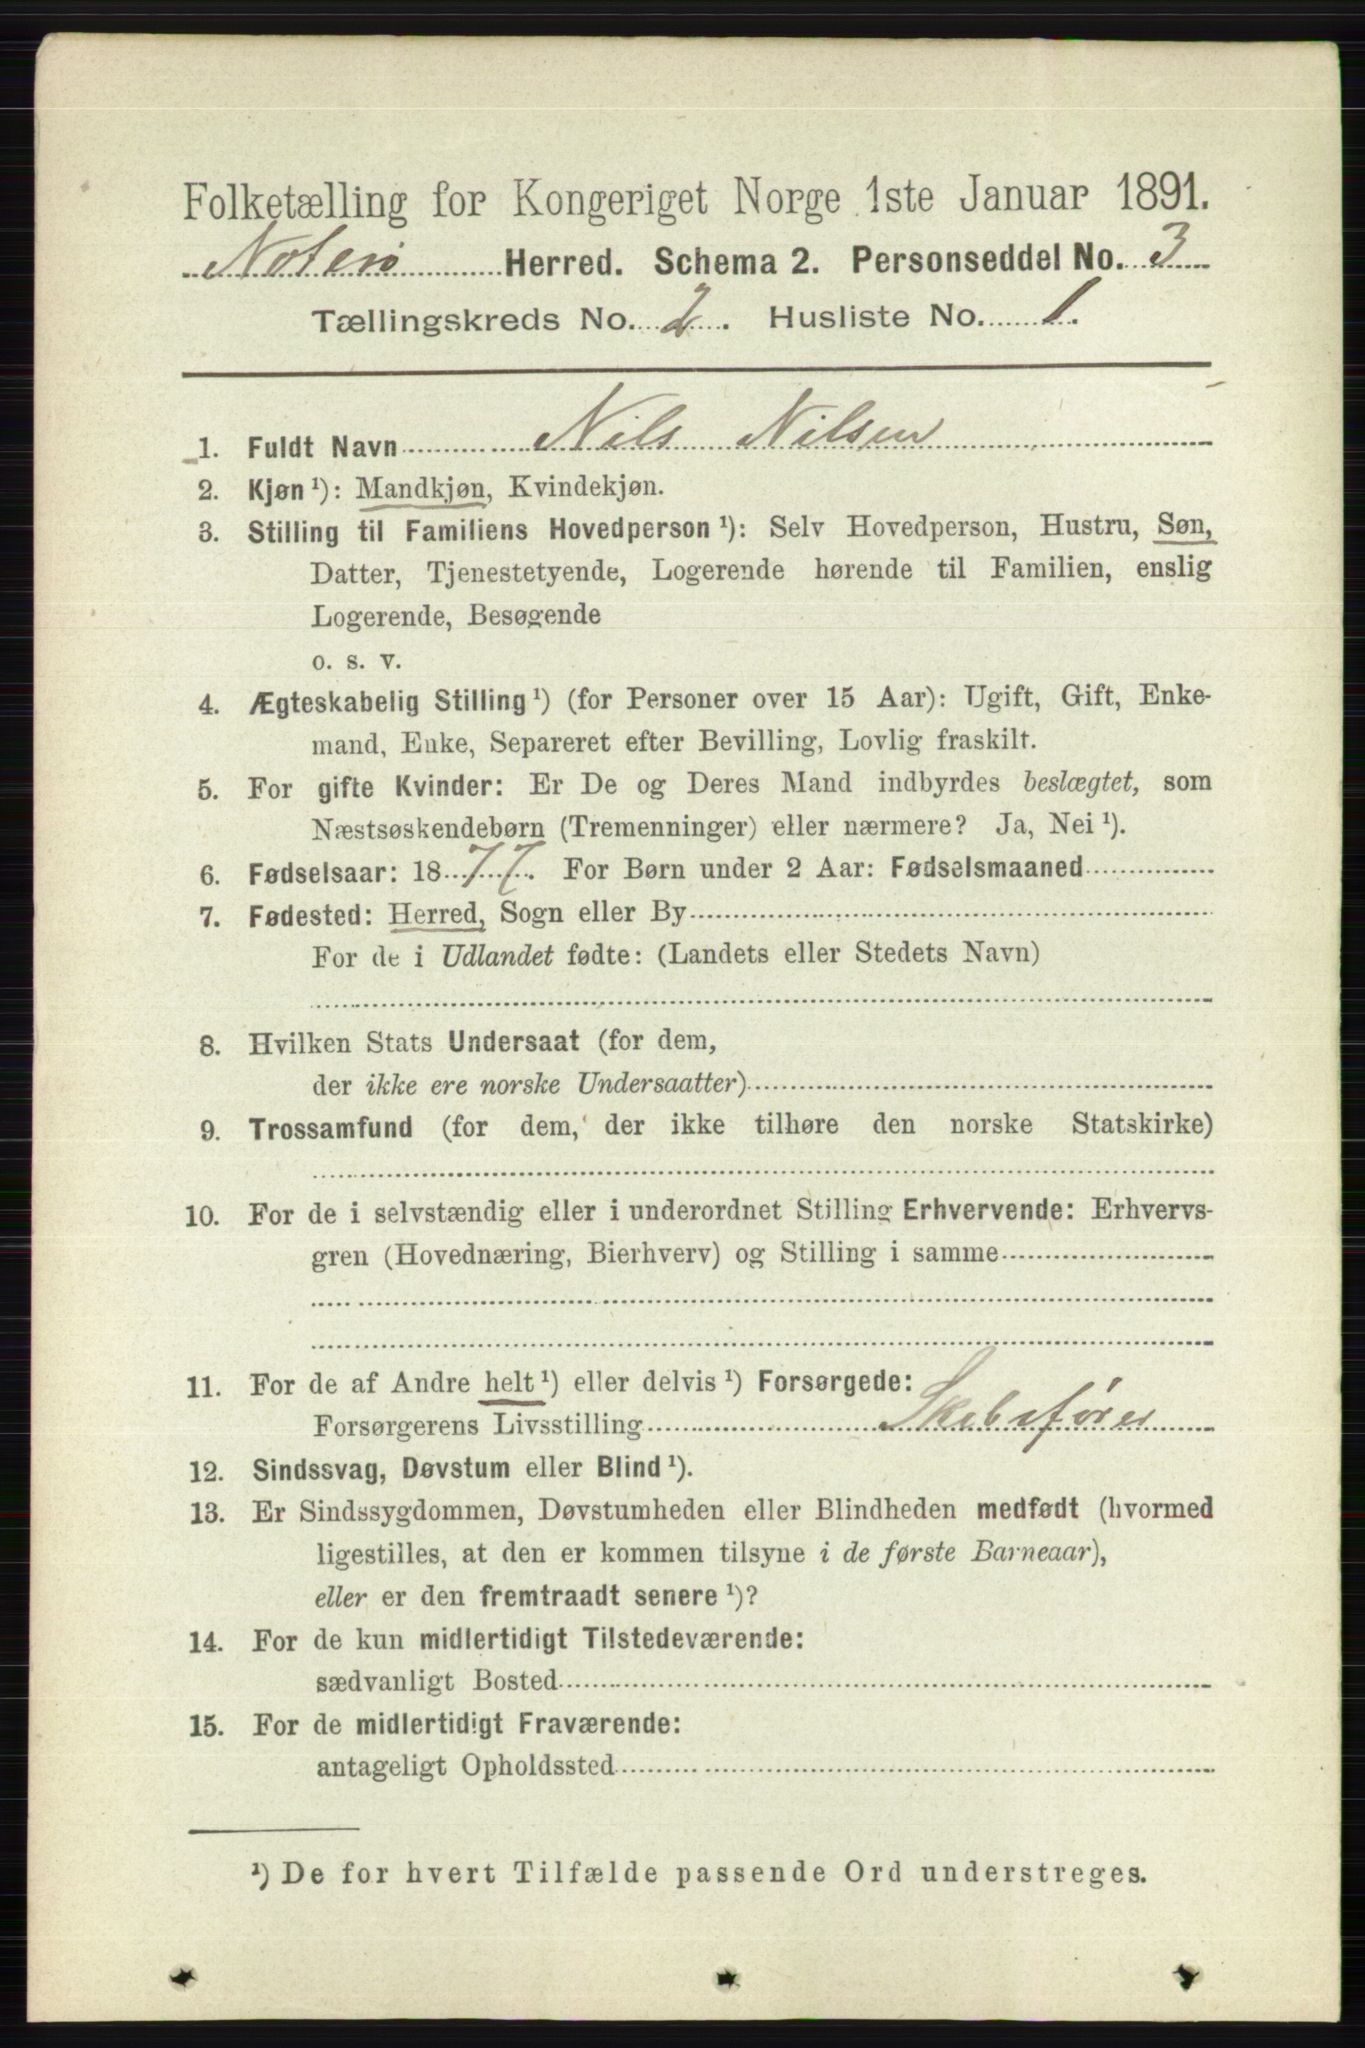 Folketælling for Kongeriget Norge 1ste Januar 1891.
Noterø Herred. Schema 2. Personseddel No. 3
Tællingskreds No. 2. Husliste No. 1.
1. Fuldt Navn Nils Nilsen
2. Kjøn ¹): Mandkjøn, Kvindekjøn.
3. Stilling til Familiens Hovedperson ¹): Selv Hovedperson, Hustru, Søn,
Datter, Tjenestetyende, Logerende hørende til Familien, enslig
Logerende, Besøgende
o. s. v.
4. Ægteskabelig Stilling ¹) (for Personer over 15 Aar): Ugift, Gift, Enke-
mand, Enke, Separeret efter Bevilling, Lovlig fraskilt.
5. For gifte Kvinder: Er De og Deres Mand indbyrdes beslægtet, som
Næstsøskendebørn (Tremenninger) eller nærmere? Ja, Nei ¹).
6. Fødselsaar: 1877. For Børn under 2 Aar: Fødselsmaaned
7. Fødested: Herred, Sogn eller By
For de i Udlandet fødte: (Landets eller Stedets Navn)
8. Hvilken Stats Undersaat (for dem,
der ikke ere norske Undersaatter)
9. Trossamfund (for dem, der ikke tilhøre den norske Statskirke)
10. For de i selvstændig eller i underordnet Stilling Erhvervende: Erhvervs-
gren (Hovednæring, Bierhverv) og Stilling i samme
11. For de af Andre helt ¹) eller delvis ¹) Forsørgede:
Forsørgerens Livsstilling Skibsfører
12. Sindssvag, Døvstum eller Blind ¹).
13. Er Sindssygdommen, Døvstumheden eller Blindheden medfødt (hvormed
ligestilles, at den er kommen tilsyne i de første Barneaar),
eller er den fremtraadt senere ¹)?
14. For de kun midlertidigt Tilstedeværende:
sædvanligt Bosted
15. For de midlertidigt Fraværende:
antageligt Opholdssted
¹) De for hvert Tilfælde passende Ord understreges.